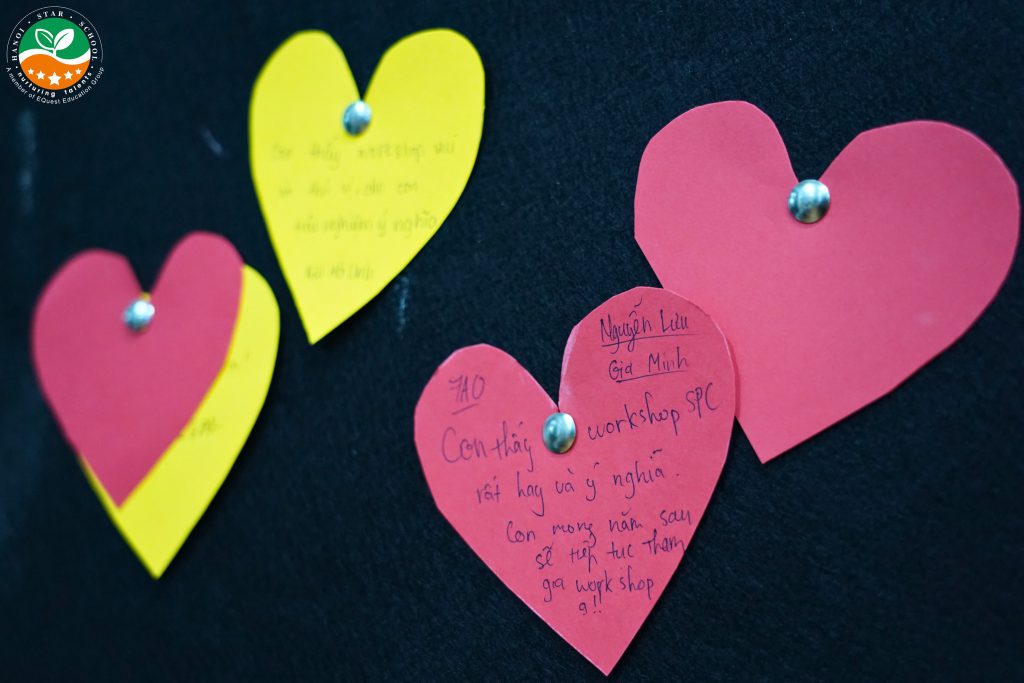 HANOI · STAR · SCHOOL
nurturing talents
A member of EQuest Education Group
Con thấy workshop vui
và thú vị, cho con
trải nghiệm ý nghĩa
7A0
Nguyễn Lưu
Gia Minh
Con thấy workshop SPC
rất hay và ý nghĩa.
Con mong năm sau
sẽ tiếp tục tham
gia workshop
ạ!!